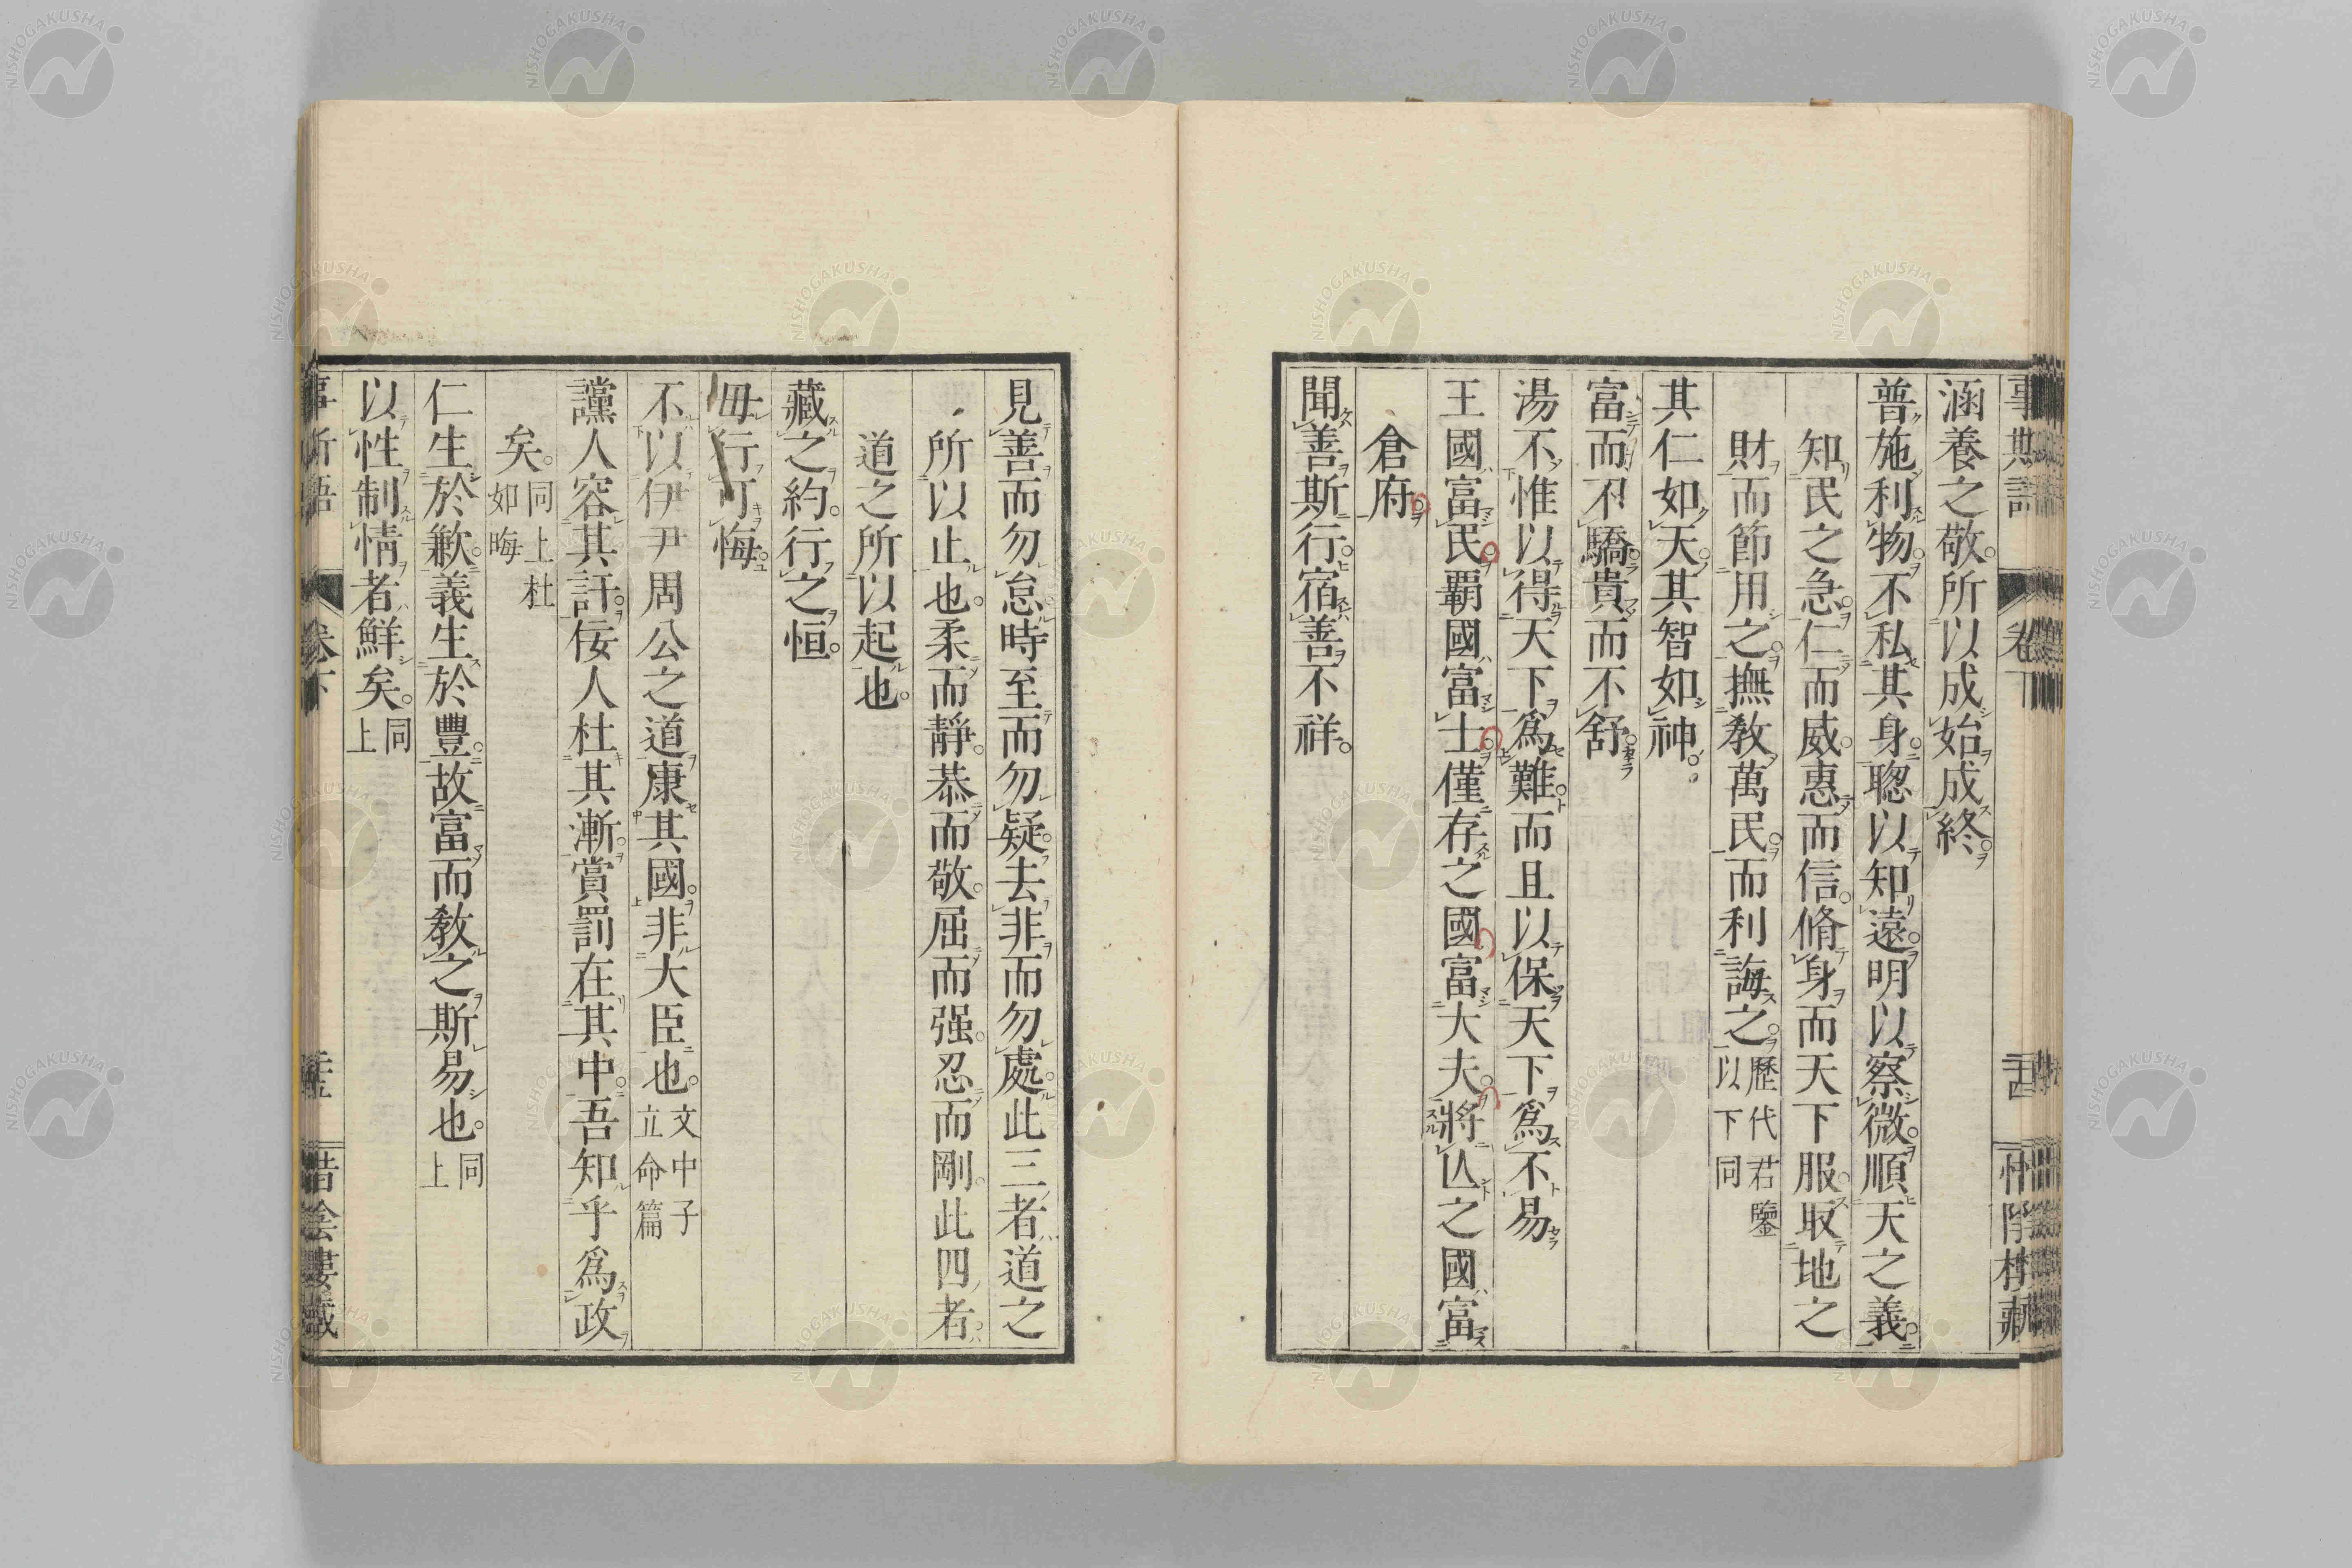 涵養之敬。所以成始成終。
普施利物。不私其身。聰以知遠。明以察微。順天之義。
知民之急。仁而威。惠而信。脩身而天下服。取地之
財而節用之。撫敎萬民。而利誨之。歷代君鑒以下同
其仁如天。其智如神。
富而不驕。貴而不舒。
湯不惟以得天下爲難。而且以保天下爲不易
王國富民。霸國富士。僅存之國。富大夫。將亾之國富
倉府。
聞善斯行。宿善不祥。
見善而勿怠。時至而勿疑。去非而勿處。此三者道之
所以止也。柔而靜。恭而敬。屈而强。忍而剛。此四者
道之所以起也。
藏之約。行之恒。
毋行可悔。
不以伊尹周公之道康其國。非大臣也。文中子立命篇
讜人容其訐。佞人杜其漸。賞罰在其中。吾知乎爲政
矣。同上杜如晦
仁生於歉。義生於豐。故富而敎之。斯易也。同上
以性制情者鮮矣。同上
卷下
NISHOGAKUSHA